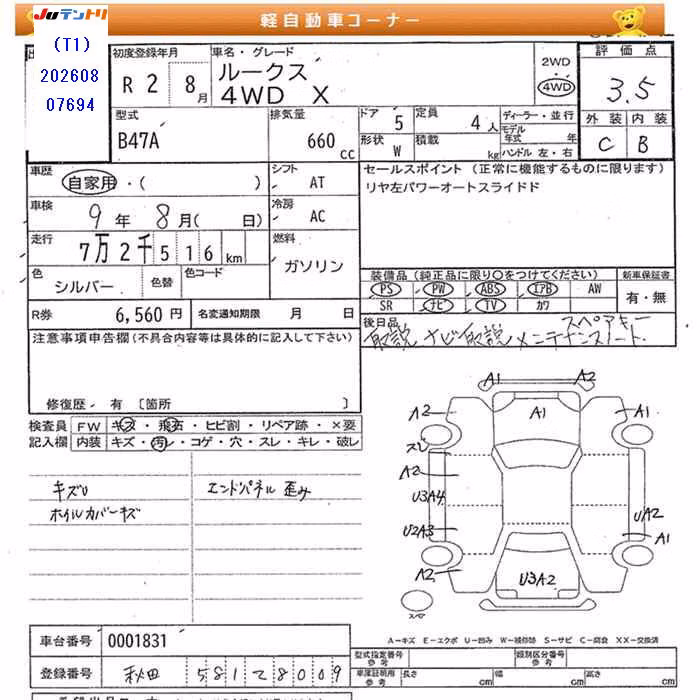 Juテントリ 軽自動車コーナー
(T1)
202608
07694
初度登録年月 車名・グレード 評価点
R 2 8月 ルークス
4WD X
2WD
4WD
3.5
外装 内装
C B
型式 排気量 ドア 定員 ディーラー・並行
B47A 660cc 5 4人 モデル年式 年
形状 積載 ハンドル 左・右
W kg
車歴 シフト セールスポイント (正常に機能するものに限ります)
自家用・( ) AT リヤ左パワーオートスライドド
車検 冷房
9年 8月( 日) AC
走行 燃料
7万2千516km ガソリン
色 色替 色コード
シルバー
装備品(純正品に限り〇をつけてください) 新車保証書
PS PW ABS エアB AW 有・無
SR ナビ TV カワ
R券 6,560円 名変通知期限 月 日
後日品
スペアキー
取説 ナビ取説 メンテナンスノート
注意事項申告欄(不具合内容等は具体的に記入して下さい)
修復歴・有 〔箇所 〕
検査員 FW キズ・飛石・ヒビ割・リペア跡・×要
記入欄 内装 キズ・汚レ・コゲ・穴・スレ・キレ・破レ
キズU エンドパネル 歪み
ホイルカバーキズ
A1 A2
A2 A1 A1
スレ
A2
U3A4
U2A3 UA2
A1
A2 U3A2
スペア
A-キズ E-エクボ U-凹み W-補修跡 S-サビ C-腐食 XX-交換済
車台番号 0001831
型式指定番号 参考 類別区分番号 参考
登録番号 秋田 581 て 8009
車庫証明用 参考 長さ cm 幅 cm 高さ cm